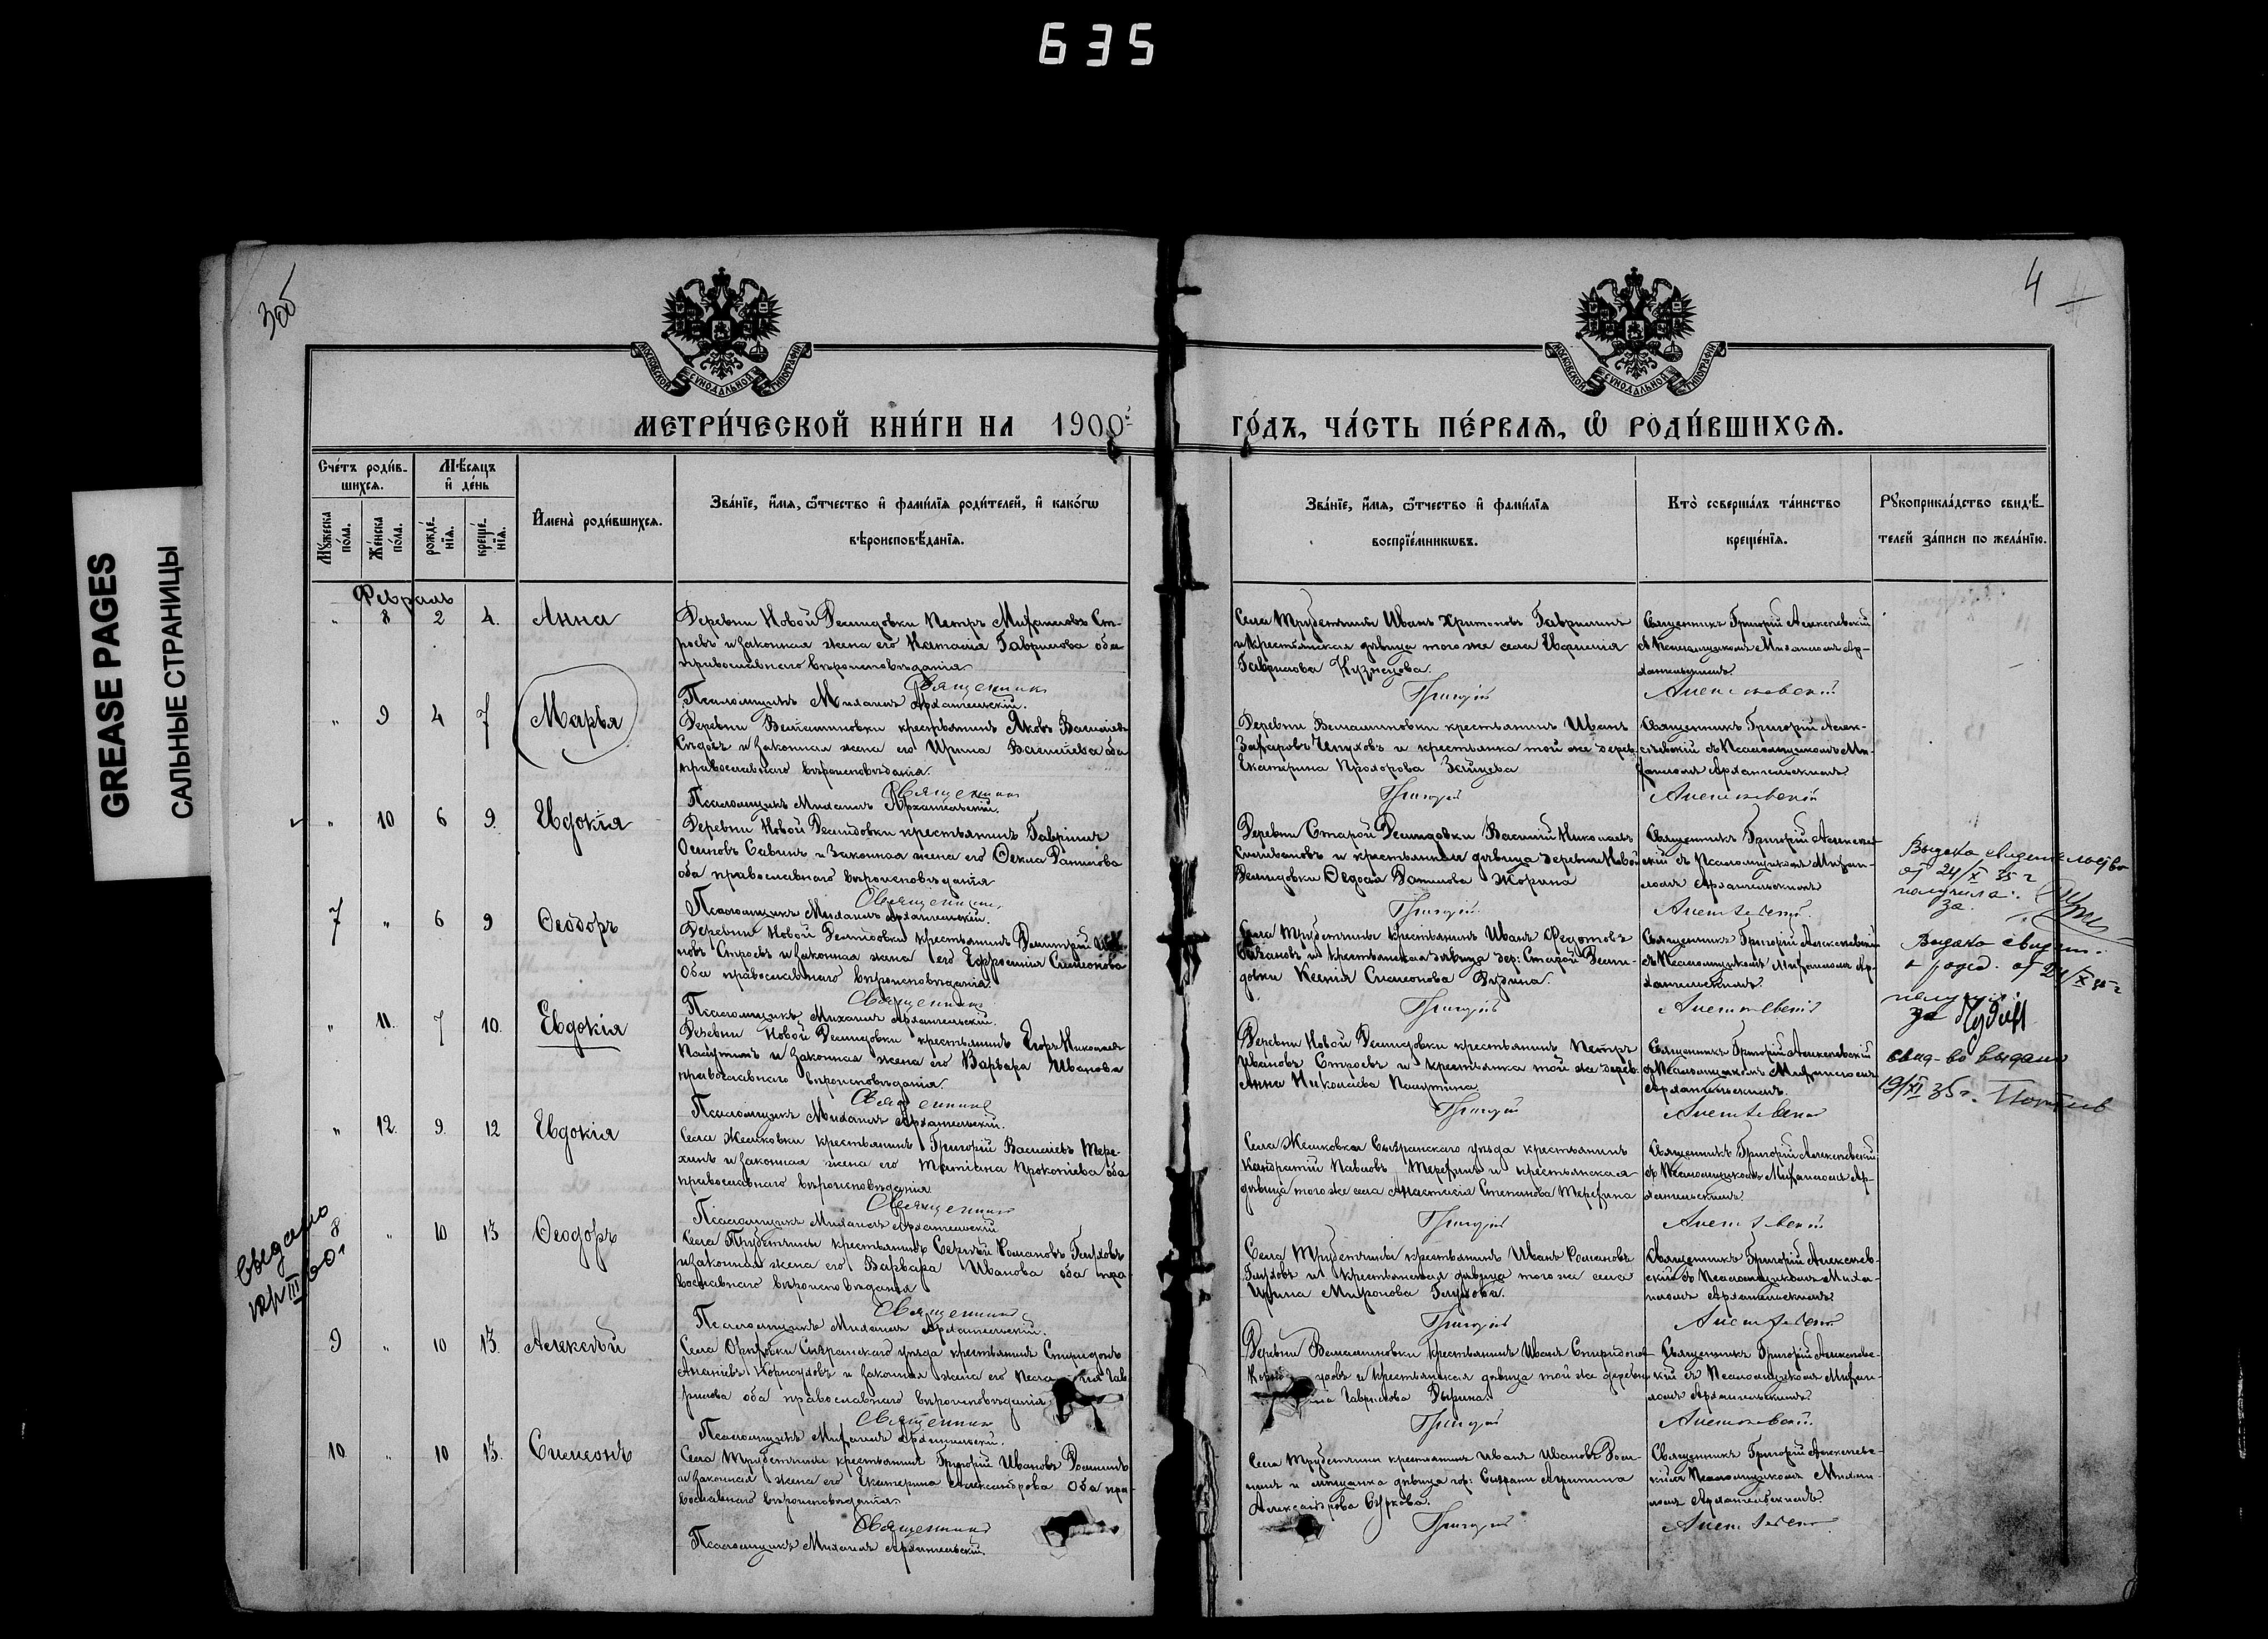 635
GREASE PAGES
САЛЬНЫЕ СТРАНИЦЫ
3об
4
МОСКОВСКОЙ СѴНОДАЛЬНОЙ ТИПОГРАФІИ
МОСКОВСКОЙ СѴНОДАЛЬНОЙ ТИПОГРАФІИ
МЕТРИ́ЧЕСКОЙ КНИ́ГИ НА 1900й
ГО́ДЪ, ЧА́СТЬ ПЕ́РВАѦ, Ѡ҆ РОДИ́ВШИХСѦ.
Сче́тъ роди́в-
шихсѧ.
Мѣ́сѧцъ
и҆ де́нь
Мꙋ́жеска
по́ла.
Же́нска
по́ла.
рожде́-
нїѧ.
креще́-
нїѧ.
И҆мена̀ роди́вшихсѧ.
Зва́нїе, и҆́мѧ, ѻ҆́тчество и҆ фамі́лїѧ роди́телей, и҆ како́гѡ
вѣроисповѣ́данїѧ.
Зва́нїе, и҆́мѧ, ѻ҆́тчество и҆ фамі́лїѧ
воспрїе́мникѡвъ.
Кто̀ соверша́лъ та́инство
креще́нїѧ.
Рꙋкоприкла́дство свидѣ́-
телей за́писи по жела́нїю.
Февраль
" 8 2 4. Анна
Деревни Новой Демидовки Петръ Михаиловъ Ст-
роевъ и законная жена его Наталия Гаврилова оба
православнаго вѣроисповѣданія
Священникъ
Псаломщикъ Михаилъ Архангельскій.
Села Трубетчины Иванъ Гаврилинъ
и крестьянская дѣвица того же села
Гаврилова Кузнецова.
Григорій
Священникъ Григорій Алексеевскій
съ Псаломщикомъ Михаиломъ Ар-
хангельскимъ
Алексеевскій
" 9 4 7 Марья
Деревни крестьянинъ Яковъ Васильевъ
и законная жена его Ирина Васильева оба
православнаго вѣроисповѣданія.
Священникъ
Псаломщикъ Михаилъ Архангельскій.
Деревни крестьянинъ Иванъ
Захаровъ и крестьянка той же дерев.
Екатерина Прохорова Зайцева
Григорій
Священникъ Григорій Алек-
сѣевскій съ Псаломщикомъ Ми-
хаиломъ Архангельскимъ
Алексеевскій
" 10 6 9. Евдокія
Деревни Новой Демидовки крестьянинъ Гавріилъ
Осиповъ Савинъ и законная жена его Ѳекла Данилова
оба православнаго вѣроисповѣданія
Священникъ
Псаломщикъ Михаилъ Архангельскій.
Деревни Старой Демидовки Василій Николаевъ
и крестьянская дѣвица деревни Новой
Демидовки Данилова Жорина
Григорій
Священникъ Григорій Алексеев-
скій съ Псаломщикомъ Михаи-
ломъ Архангельскимъ
Алексеевскій
Выдано свидетельство
от 24/X 35 г
получила:
за
7 " 6 9 Ѳеодоръ
Деревни Новой Демидовки крестьянинъ Димитрій Ива-
новъ Строевъ и законная жена его Ефросинія Симеонова
Оба православнаго вѣроисповѣданія.
Священникъ
Псаломщикъ Михаилъ Архангельскій.
Села Трубетчины крестьянинъ Иванъ Федотовъ
и крестьянская дѣвица дер: Старой Деми-
довки Ксенія Симеонова
Григорій
Священникъ Григорій Алексеевскій
съ Псаломщикомъ Михаиломъ Ар-
хангельскимъ
Алексеевскій
Выдано свидет.
о рожд. от 24/X 35 г
получил:
за
" 11. 7 10. Евдокія
Деревни Новой Демидовки крестьянинъ Егоръ Николаевъ
и законная жена его Варвара Иванова
православнаго вѣроисповѣданія
Священникъ
Псаломщикъ Михаилъ Архангельскій.
Деревни Новой Демидовки крестьянинъ Петръ
Ивановъ Строевъ и крестьянка той же дерев.
Анна Николаева
Григорій
Священникъ Григорій Алексеевскій
съ Псаломщикомъ Михаиломъ
Архангельскимъ.
Алексеевскій
свид-во выдано
19/XI 35 г.
" 12. 9. 12 Евдокія
Села Жемковки крестьянинъ Григорій Васильевъ Тере-
хинъ и законная жена его Татіана Прокопіева оба
православнаго вѣроисповѣданія
Священникъ
Псаломщикъ Михаилъ Архангельскій
Села Жемковки Сызранскаго уѣзда крестьянинъ
Кондратій Павловъ Терехинъ и крестьянская
дѣвица того же села Анастасія Степанова Терехина
Григорій
Священникъ Григорій Алексеевскій
съ Псаломщикомъ Михаиломъ Ар-
хангельскимъ
Алексеевскій
8 " 10 13 Ѳеодоръ
Села Трубетчины крестьянинъ Сергѣй Романовъ Глуховъ
и законная жена его Варвара Иванова оба пра-
вославнаго вѣроисповѣданія
Священникъ
Псаломщикъ Михаилъ Архангельскій.
Села Трубетчины крестьянинъ Иванъ Романовъ
Глуховъ и крестьянская дѣвица того же села
Ирина Миронова Глухова.
Григорій
Священникъ Григорій Алексеев-
скій съ Псаломщикомъ Миха-
иломъ Архангельскимъ
Алексеевскій
9 " 10 13. Алексѣй
Села Сызранскаго уѣзда крестьянинъ Спиридонъ
и законная жена его Гав-
рилова оба православнаго вѣроисповѣданія
Священникъ
Псаломщикъ Михаилъ Архангельскій.
Деревни крестьянинъ Иванъ Спиридоновъ
и крестьянская дѣвица той же деревни
Гаврилова
Григорій
Священникъ Григорій Алексеев-
скій съ Псаломщикомъ Михаи-
ломъ Архангельскимъ
Алексеевскій.
10 " 10 13. Симеонъ
Села Трубетчины крестьянинъ Григорій Ивановъ
и законная жена его Екатерина Александрова Оба пра-
вославнаго вѣроисповѣданія.
Священникъ
Псаломщикъ Михаилъ Архангельскій.
Села Трубетчины крестьянинъ Иванъ Ивановъ
и мѣщанка дѣвица гор: Сызрани
Александрова Суркова.
Григорій
Священникъ Григорій Алексеев-
скій Псаломщикомъ Михаи-
ломъ Архангельскимъ
Алексеевскій